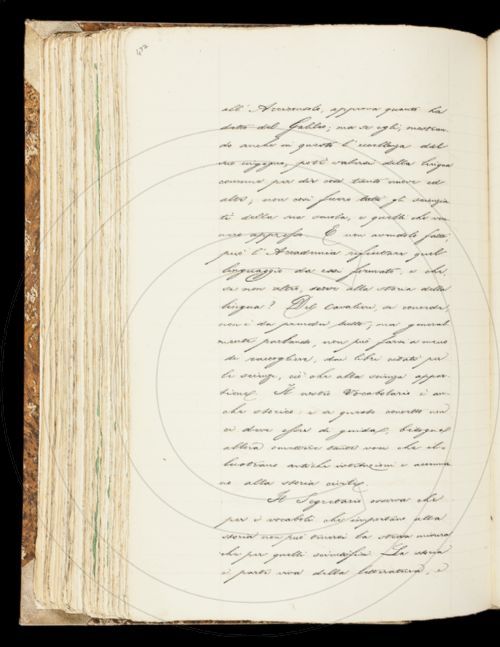 472
all' Arciconsolo, approva quanto ha
detto del Galileo; ma se egli, mostran-
do anche in questo l'eccellenza del
suo ingegno, potè valersi della lingua
comune per dir cose tanto nuove ed
alte, non così fecero tutti gli scienzia-
ti della sua scuola, e quelli che ven-
nero appresso. E non avendolo fatto,
può l'Accademia rifiutare quel
linguaggio da essi formato, e che,
se non altro, serve alla storia della
lingua? Del Cavalieri, ne conviene,
non è da prendere tutto; ma general-
mente parlando, non può farsi a meno
di raccogliere, dai libri citati per
le scienze, ciò che alla scienza appar-
tiene. Il nostro Vocabolario è an-
che storico: e se questo concetto non
ci deve essere di guida, bisogna
altre voci che il-
lustrano antiche istituzioni e
alla storia civile.
Il Segretario osserva che
per i vocaboli che importano alla
storia non può tenersi la stessa misura
che per quelli scientifici. La storia
è parte viva della letteratura, e